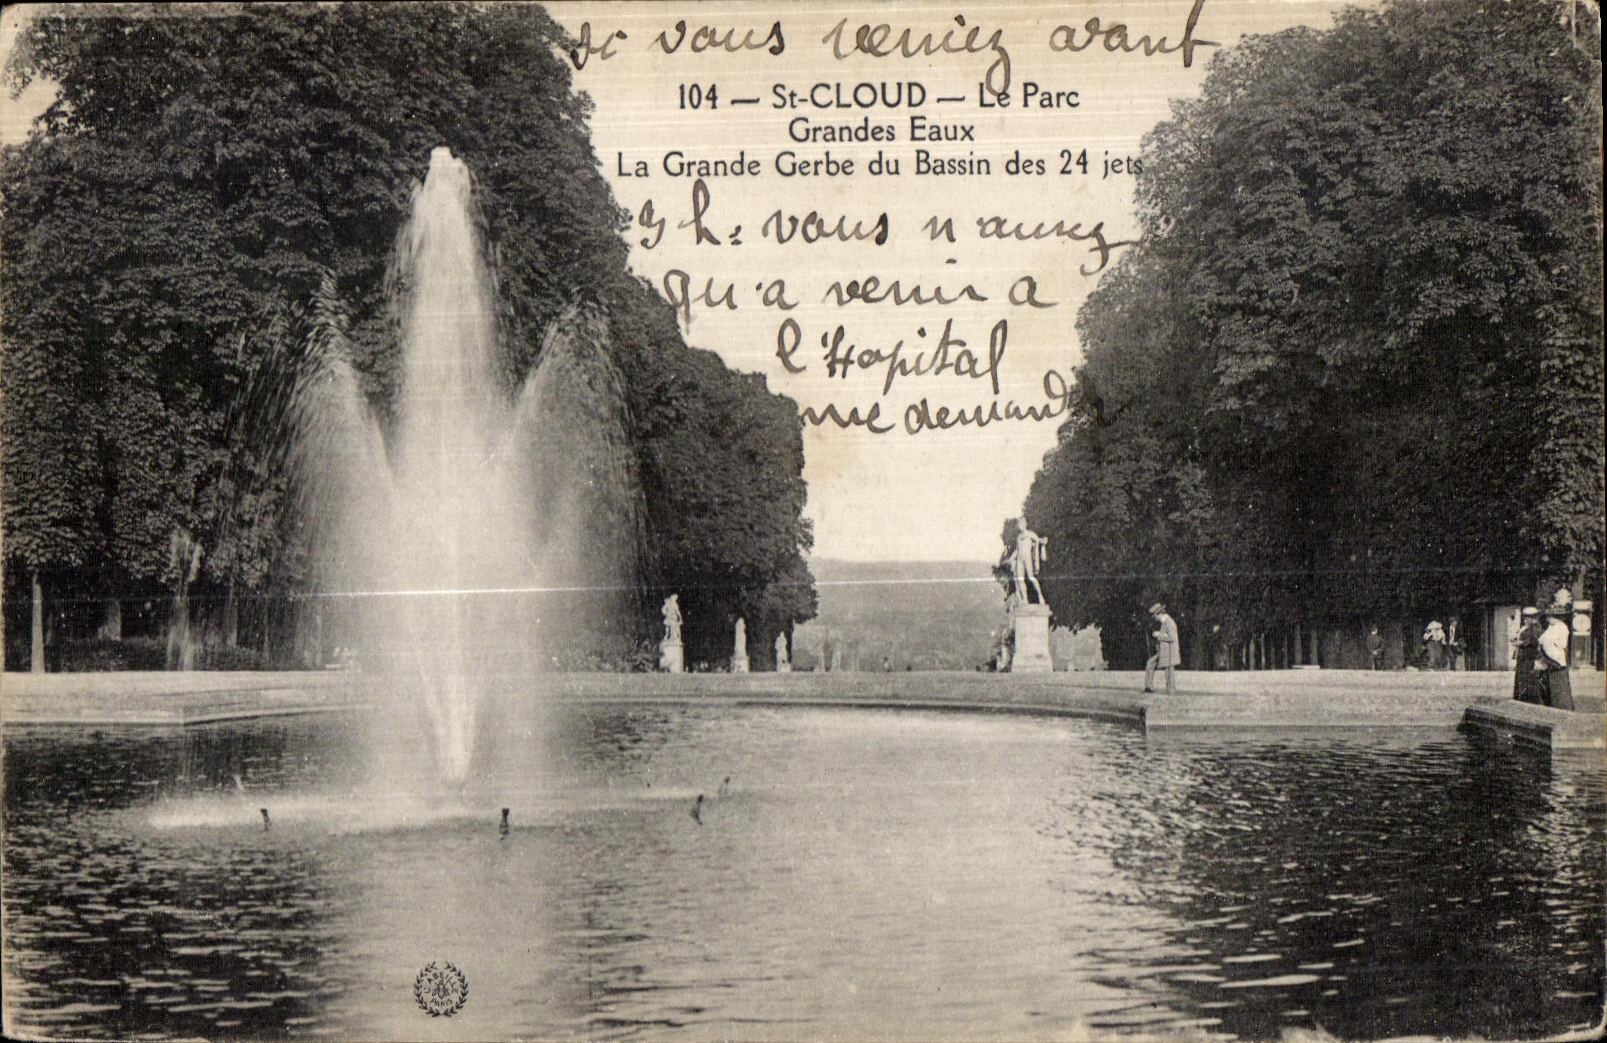 si vous veniez avant
104 — St-CLOUD — Le Parc
Grandes Eaux
La Grande Gerbe du Bassin des 24 jets
3 h: vous n'aurez
qu'a venir a
l'Hopital
me demander
PARIS